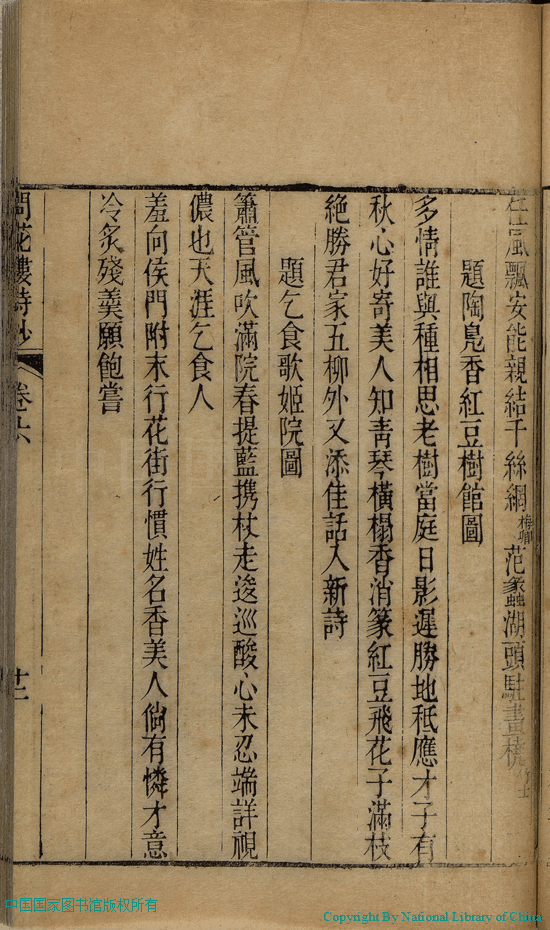 風飄安能親結千絲網梅卿范蠡湖頭駐畫橈
題陶鳧香紅豆樹館圖
多情誰與種相思老樹當庭日影遲勝地秪應才子有
秋心好寄美人知靑琴橫榻香消篆紅豆飛花子滿枝
絶勝君家五柳外又添佳話入新詩
題乞食歌姬院圖
簫管風吹滿院春提藍携杖走逡巡酸心未忍端詳視
儂也天涯乞食人
羞向侯門附末行花街行慣姓名香美人倘有憐才意
冷炙殘羹願飽嘗
問花樓詩鈔 卷六 十二
中国国家图书馆版权所有
Copyright By National Library of China